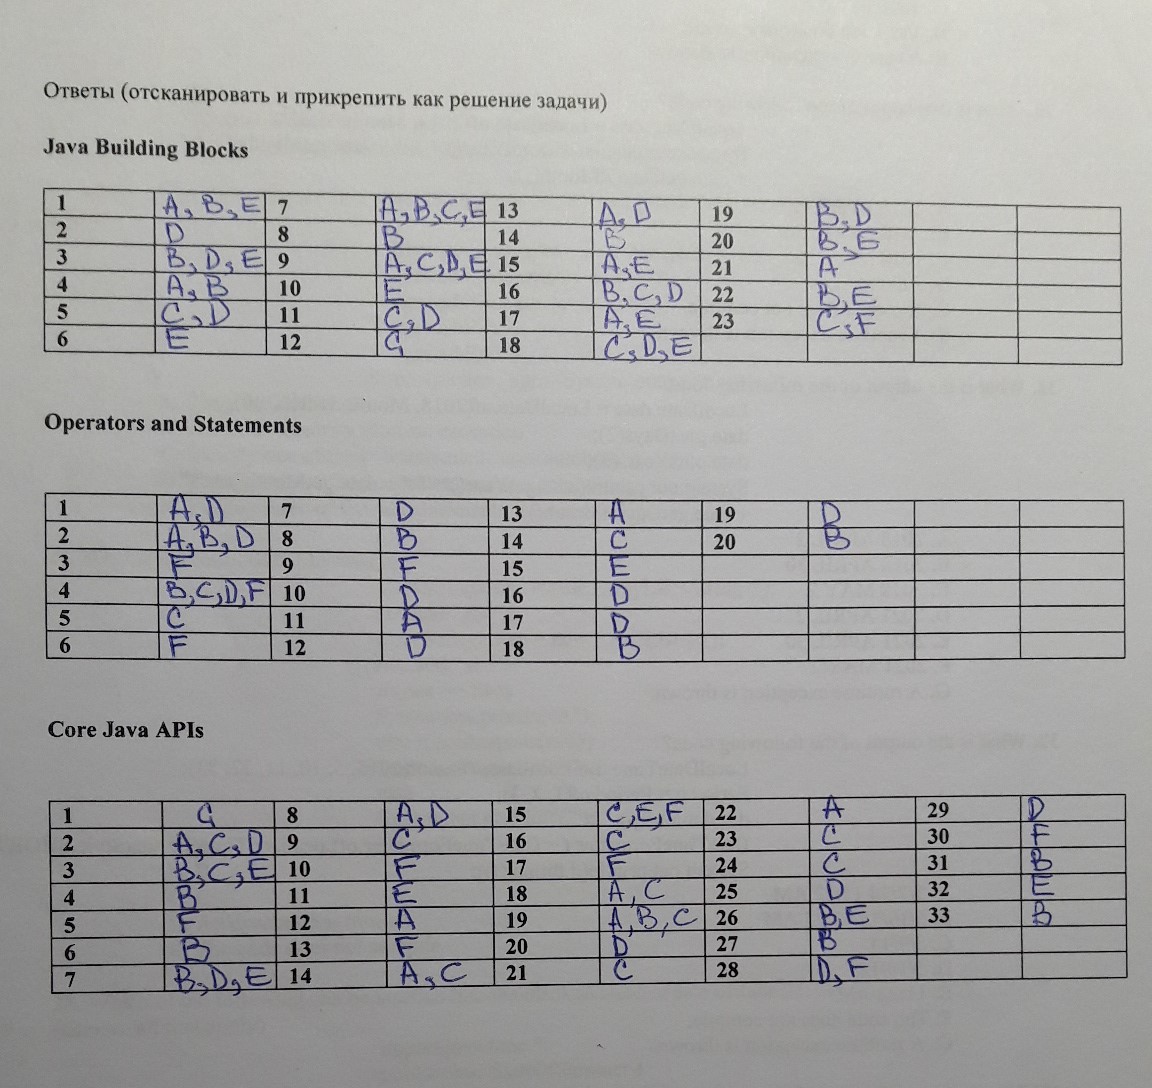 Ответы (отсканировать и прикрепить как решение задачи)
Java Building Blocks
1 A, B, E 7 A, B, C, E 13 A, D 19 B, D
2 D 8 B 14 B 20 B, E
3 B, D, E 9 A, C, D, E 15 A, E 21 A
4 A, B 10 E 16 B, C, D 22 B, E
5 C, D 11 C, D 17 A, E 23 C, F
6 E 12 G 18 C, D, E
Operators and Statements
1 A, D 7 D 13 A 19 D
2 A, B, D 8 B 14 C 20 B
3 F 9 F 15 E
4 B, C, D, F 10 D 16 D
5 C 11 A 17 D
6 F 12 D 18 B
Core Java APIs
1 G 8 A, D 15 C, E, F 22 A 29 D
2 A, C, D 9 C 16 C 23 C 30 F
3 B, C, E 10 F 17 F 24 C 31 B
4 B 11 E 18 A, C 25 D 32 E
5 F 12 A 19 A, B, C 26 B, E 33 B
6 B 13 F 20 D 27 B
7 B, D, E 14 A, C 21 C 28 D, F